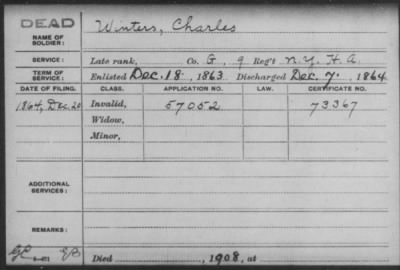 DEAD
NAME OF SOLDIER: Winters, Charles
SERVICE: Late rank, Co. G, 9 Reg't N.Y. H.A.
TERM OF SERVICE: Enlisted Dec. 18, 1863 Discharged Dec. 7, 1864
DATE OF FILING. CLASS. APPLICATION NO. LAW. CERTIFICATE NO.
1864, Dec. 20 Invalid, 57052 73367
Widow,
Minor,
ADDITIONAL SERVICES:
REMARKS:
Died , 1908, at